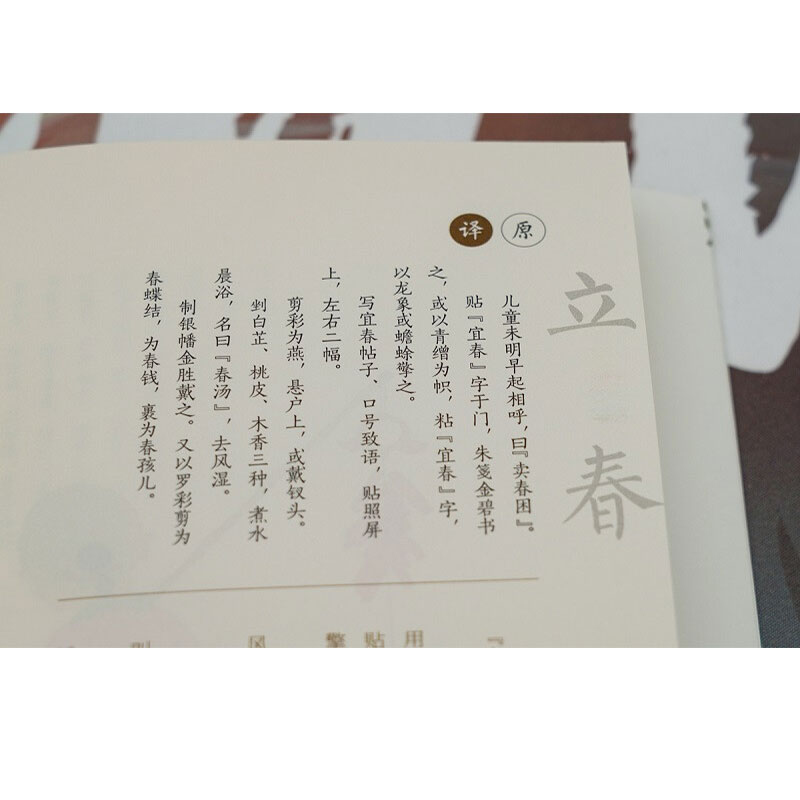 立春
原
译
儿童未明早起相呼，曰『卖春困』。
贴『宜春』字于门，朱笺金碧书
之，或以青缯为帜，粘『宜春』字，
以龙象或蟾蜍擎之。
写宜春帖子、口号致语，贴照屏
上，左右二幅。
剪彩为燕，悬户上，或戴钗头。
剉白芷、桃皮、木香三种，煮水
晨浴，名曰『春汤』，去风湿。
制银幡金胜戴之。又以罗彩剪为
春蝶结，为春钱，裹为春孩儿。
用
贴
擎